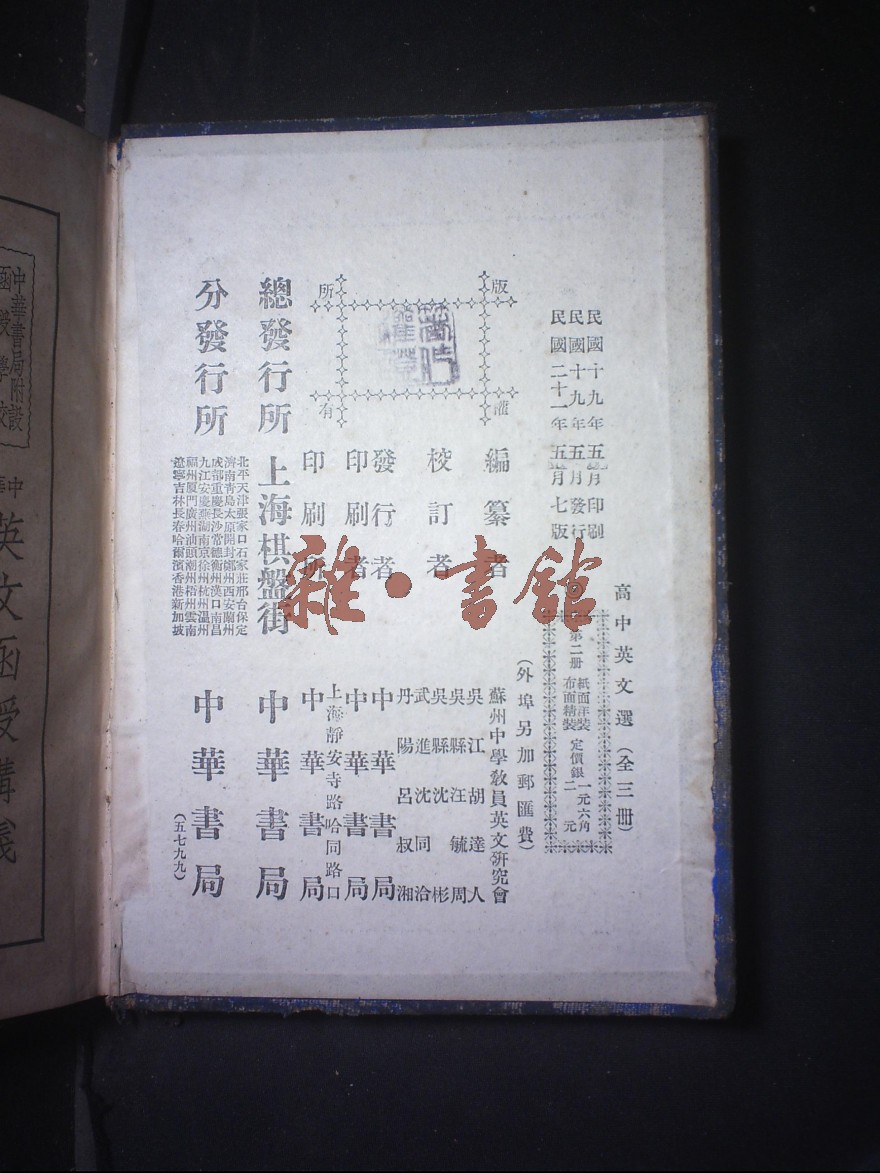 民國十九年五月印刷
民國十九年五月發行
民國二十一年五月七版
高中英文選（全三冊）
第二冊
紙面洋裝 定價銀一元六角
布面精裝 定價銀二元
（外埠另加郵匯費）
版權所有
編纂者 蘇州中學教員英文研究會
校訂者
吳江胡達人
吳縣汪毓周
吳縣沈彬
武進沈同洽
丹陽呂叔湘
發行者 中華書局
印刷者 中華書局
上海靜安寺路哈同路口
印刷所 中華書局
總發行所 上海棋盤街 中華書局
分發行所
北平天津張家口石家莊邢台保定
濟南青島太原開封鄭州西安蘭州
成都重慶長沙常德衡州漢口南昌
九江安慶蕪湖南京徐州杭州温州
福州廈門廣州汕頭潮州梧州雲南
遼寧吉林長春哈爾濱香港新加坡
中華書局
（五七九九）
雜·書館
中華書局附設
函授學校
英文函授講義